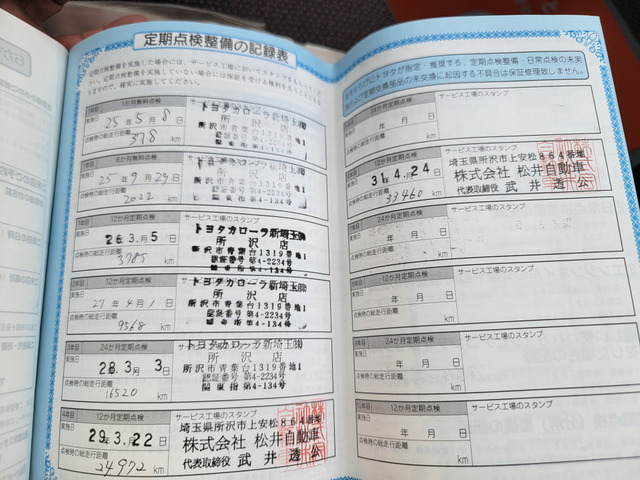 定期点検整備の記録表
定期点検整備を実施した場合には、サービス工場においてスタンプを
さい。定期点検整備を実施していない場合には保証を受ける権利を
ますので、確実に実施してください。
1か月無料点検
実施日
25年5月8日
点検時の総走行距離
378 km
トヨタカローラ新埼玉㈱
所沢店
所沢市青葉台1319番地1
6か月無料点検
実施日
25年9月29日
点検時の総走行距離
2022 km
1年目 12か月定期点検
サービス工場のスタンプ
実施日
26.3月5日
点検時の総走行距離
3785 km
トヨタカローラ新埼玉㈱
所沢店
所沢市青葉台1319番地1
認証番号 第4-2234号
指令番号 第4-134号
24か月定期点検
サービス工場のスタンプ
実施日
27年4月1日
点検時の総走行距離
9568 km
トヨタカローラ新埼玉㈱
所沢店
所沢市青葉台1319番地1
認証番号 第4-2234号
第4-134号
3年目 24か月定期点検
サービス工場のスタンプ
実施日
28.3月3日
点検時の総走行距離
16520 km
トヨタカローラ新埼玉㈱
所沢店
所沢市青葉台1319番地1
認証番号 第4-2234号
関東指 第4-134号
4年目 12か月定期点検
サービス工場のスタンプ
実施日
29.3.22日
点検時の総走行距離
24972 km
埼玉県所沢市上安松864番地
株式会社 松井自動車
代表取締役 武井透公
トヨタが指定・推奨する、定期点検整備・日常点検の未実
および定期交換部品の未交換に起因する不具合は保証修理致しません。
24か月定期点検
サービス工場のスタンプ
実施日
年 月 日
点検時の総走行距離
km
12か月定期点検
実施日
31年4.24日
点検時の総走行距離
33460 km
埼玉県所沢市上安松864番地
株式会社 松井自動車
代表取締役 武井透公
24か月定期点検
サービス工場のスタンプ
実施日
年 月 日
点検時の総走行距離
km
12か月定期点検
サービス工場のスタンプ
実施日
年 月 日
点検時の総走行距離
km
24か月定期点検
サービス工場のスタンプ
実施日
年 月 日
点検時の総走行距離
km
12か月定期点検
サービス工場のスタンプ
実施日
年 月 日
点検時の総走行距離
km